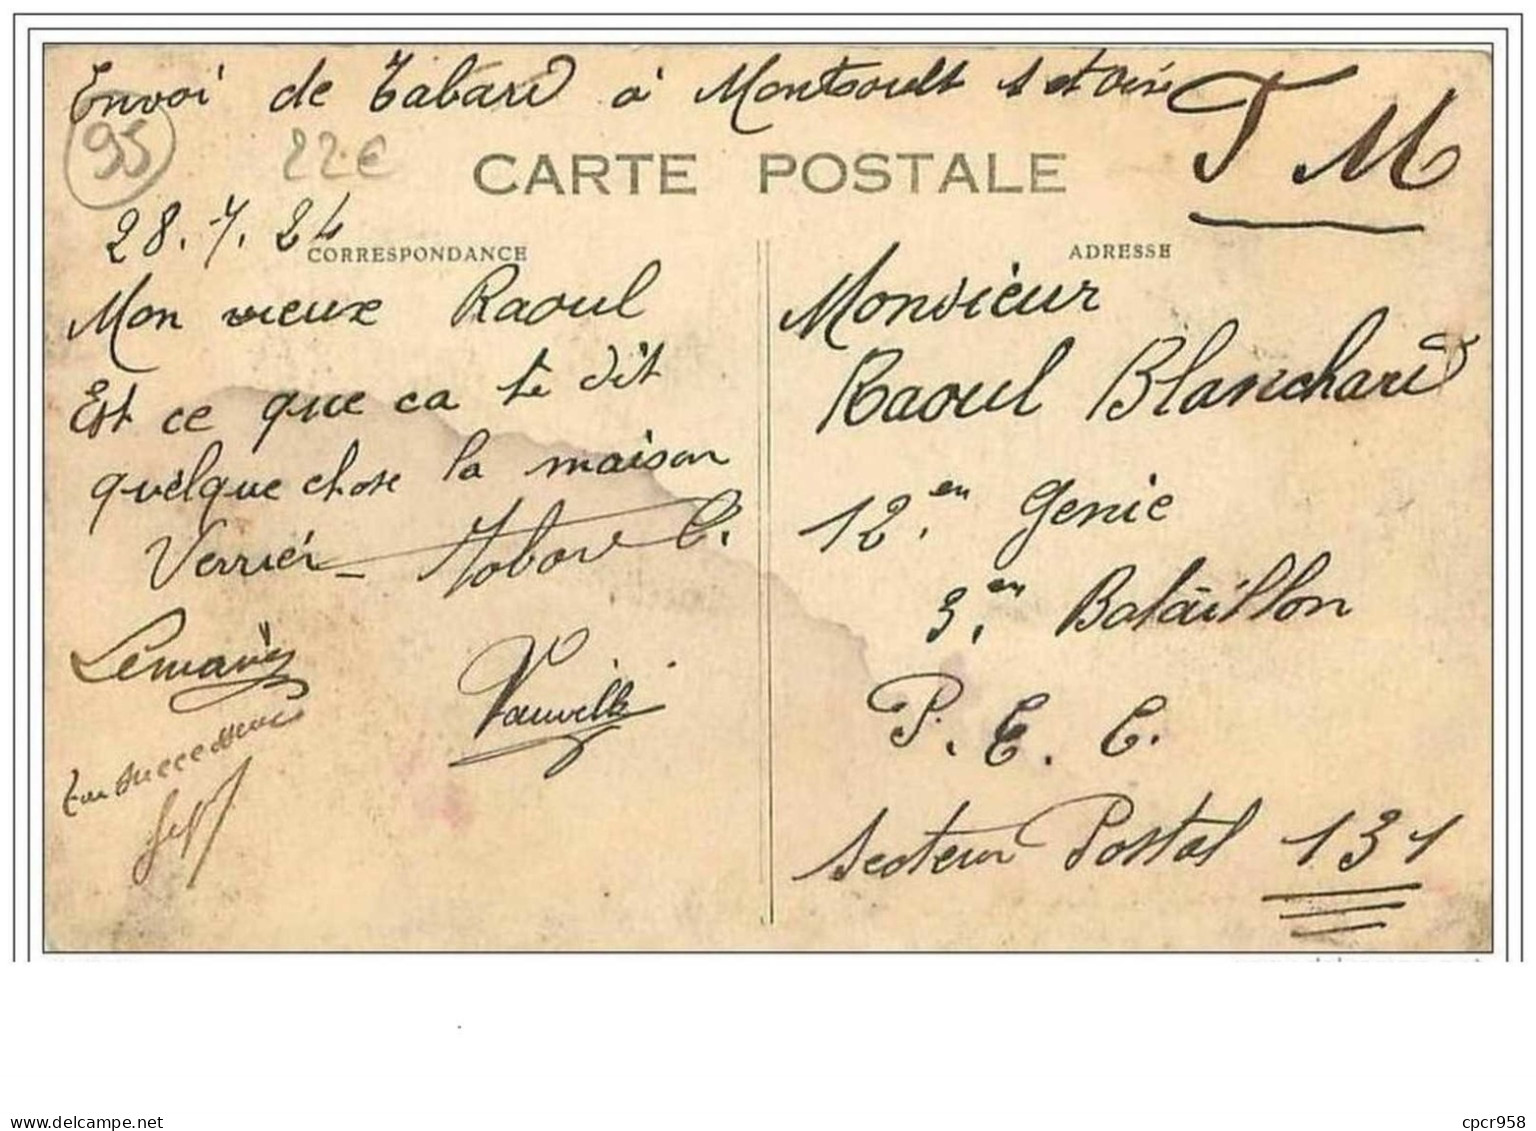 Envoi de Tabard à Montsoult S et Oise
T M
95
22 €
CARTE POSTALE
28.7.24
CORRESPONDANCE
Mon vieux Raoul
Est ce que ca te dit
quelque chose la maison
Verrier - Tabard C.
Lemariey
Vauville
ton successeur
ADRESSE
Monsieur
Raoul Blanchard
12.en Genie
3.en Bataillon
P. E. C.
Secteur Postal 131
cpcr958
delcampe.net